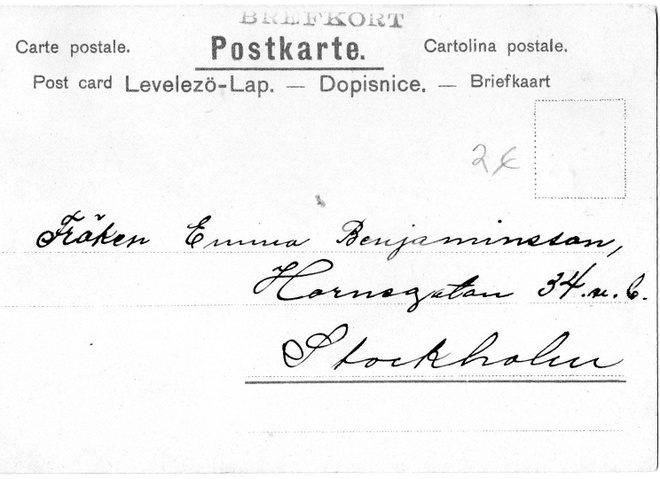 BREFKORT
Carte postale. Postkarte. Cartolina postale.
Post card Levelezö-Lap. — Dopisnice. — Briefkaart
Fröken Emma Benjaminsson,
Hornsgatan 34.
Stockholm